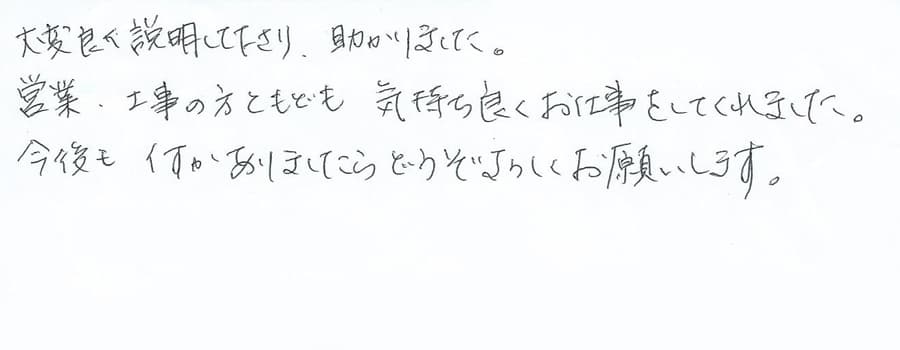 大変良く説明して下さり、助かりました。
営業、工事の方ともども 気持ち良くお仕事をしてくれました。
今後も 何かありましたらどうぞよろしくお願いします。